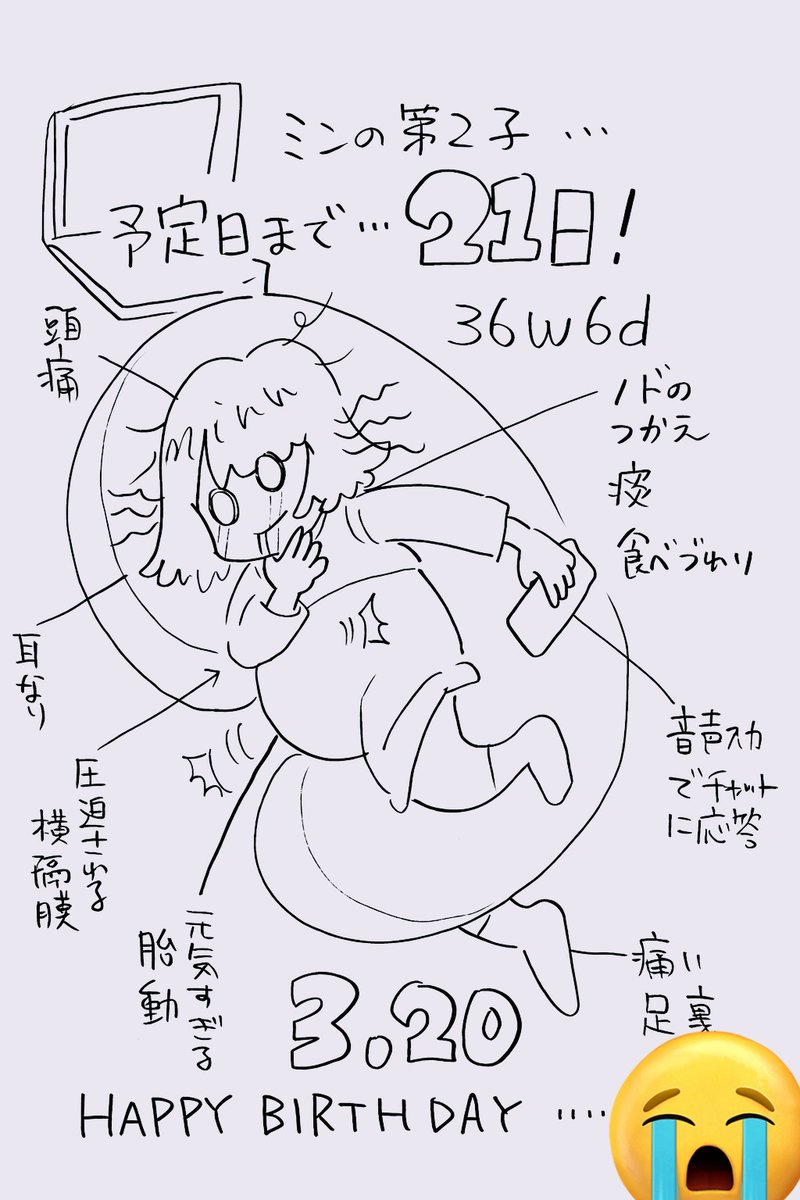 ミンの第2子…
予定日まで…21日!
36w6d
頭痛
ノドの
つかえ
痰
食べづわり
耳なり
圧迫される
横隔膜
音声入力
でチャット
に応答
元気すぎる
胎動
痛い
足裏
3.20
HAPPY BIRTHDAY ....